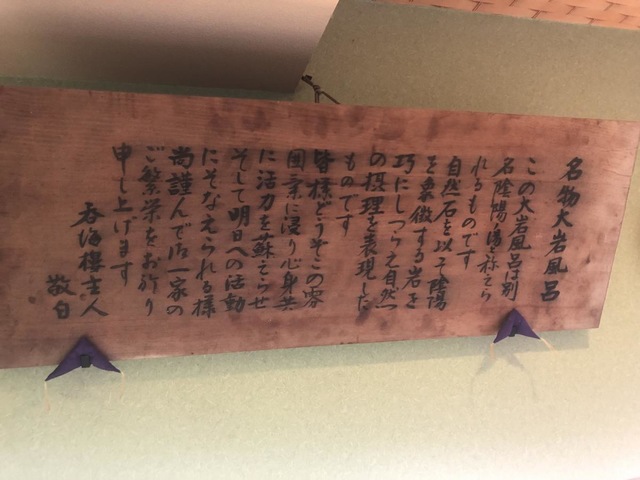 名物大岩風呂
この大岩風呂は別
名陰陽の湯と称せら
れるものです
自然石を以て陰陽
を象徴する岩を
巧にしつらえ自然
の摂理を表現した
ものです
皆様どうぞこの雰
囲気に浸り心身共
に活力を蘇そらせ
そして明日への活動
にそなえられる様
尚謹んで御一家の
ご繁栄をお祈り
申し上げます
呑海楼主人
敬白